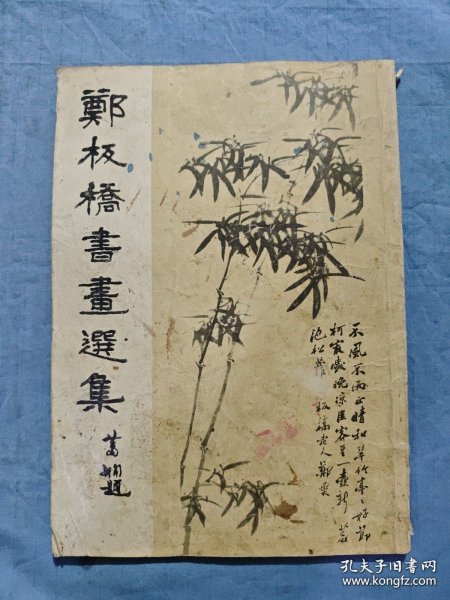 鄭板橋書畫選集
蕭嫻題
不風不雨正晴和翠竹亭〻好節
柯㝡愛晚涼佳客至一壺新茗
泡松蘿 板橋老人鄭燮
孔夫子旧书网
www.kongfz.com